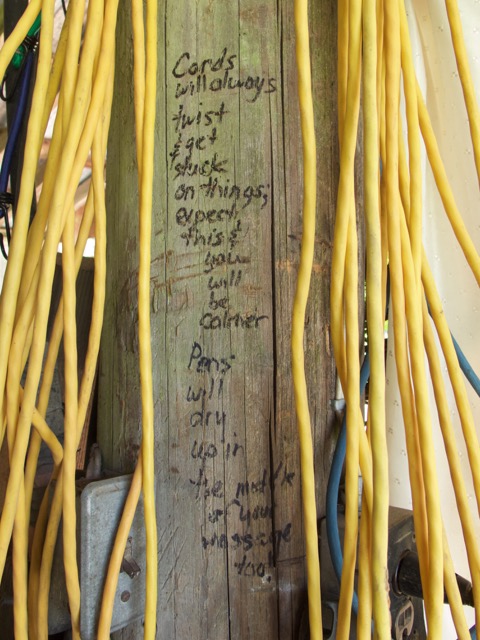 Cords
will always
twist
& get
stuck
on things;
expect
this &
you
will
be
calmer
Pens
will
dry
up in
the middle
of your
message
too!